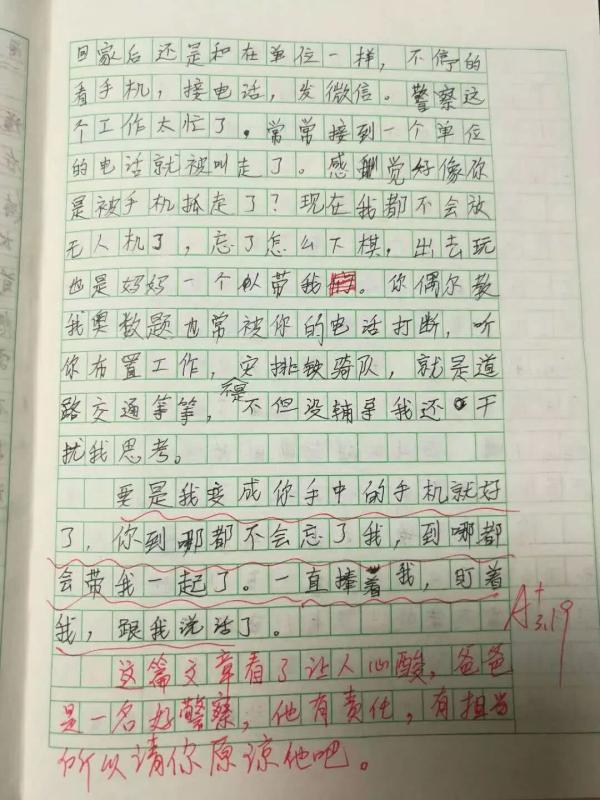 回家后还是和在单位一样，不停的
看手机，接电话，发微信。警察这
个工作太忙了，常常接到一个单位
的电话就被叫走了。感觉好像你
是被手机抓走了？现在我都不会放
无人机了，忘了怎么下棋，出去玩
也是妈妈一个人带我。你偶尔教
我奥数题也常被你的电话打断，听
你布置工作，安排铁骑队，就是道
路交通等等，不是不但没辅导我还干
扰我思考。
要是我变成你手中的手机就好
了，你到哪都不会忘了我，到哪都
会带我一起了。一直捧着我，盯着
我，跟我说话了。
A+
3.19
这篇文章看了让人心酸，爸爸
是一名好警察，他有责任，有担当
所以请你原谅他吧。